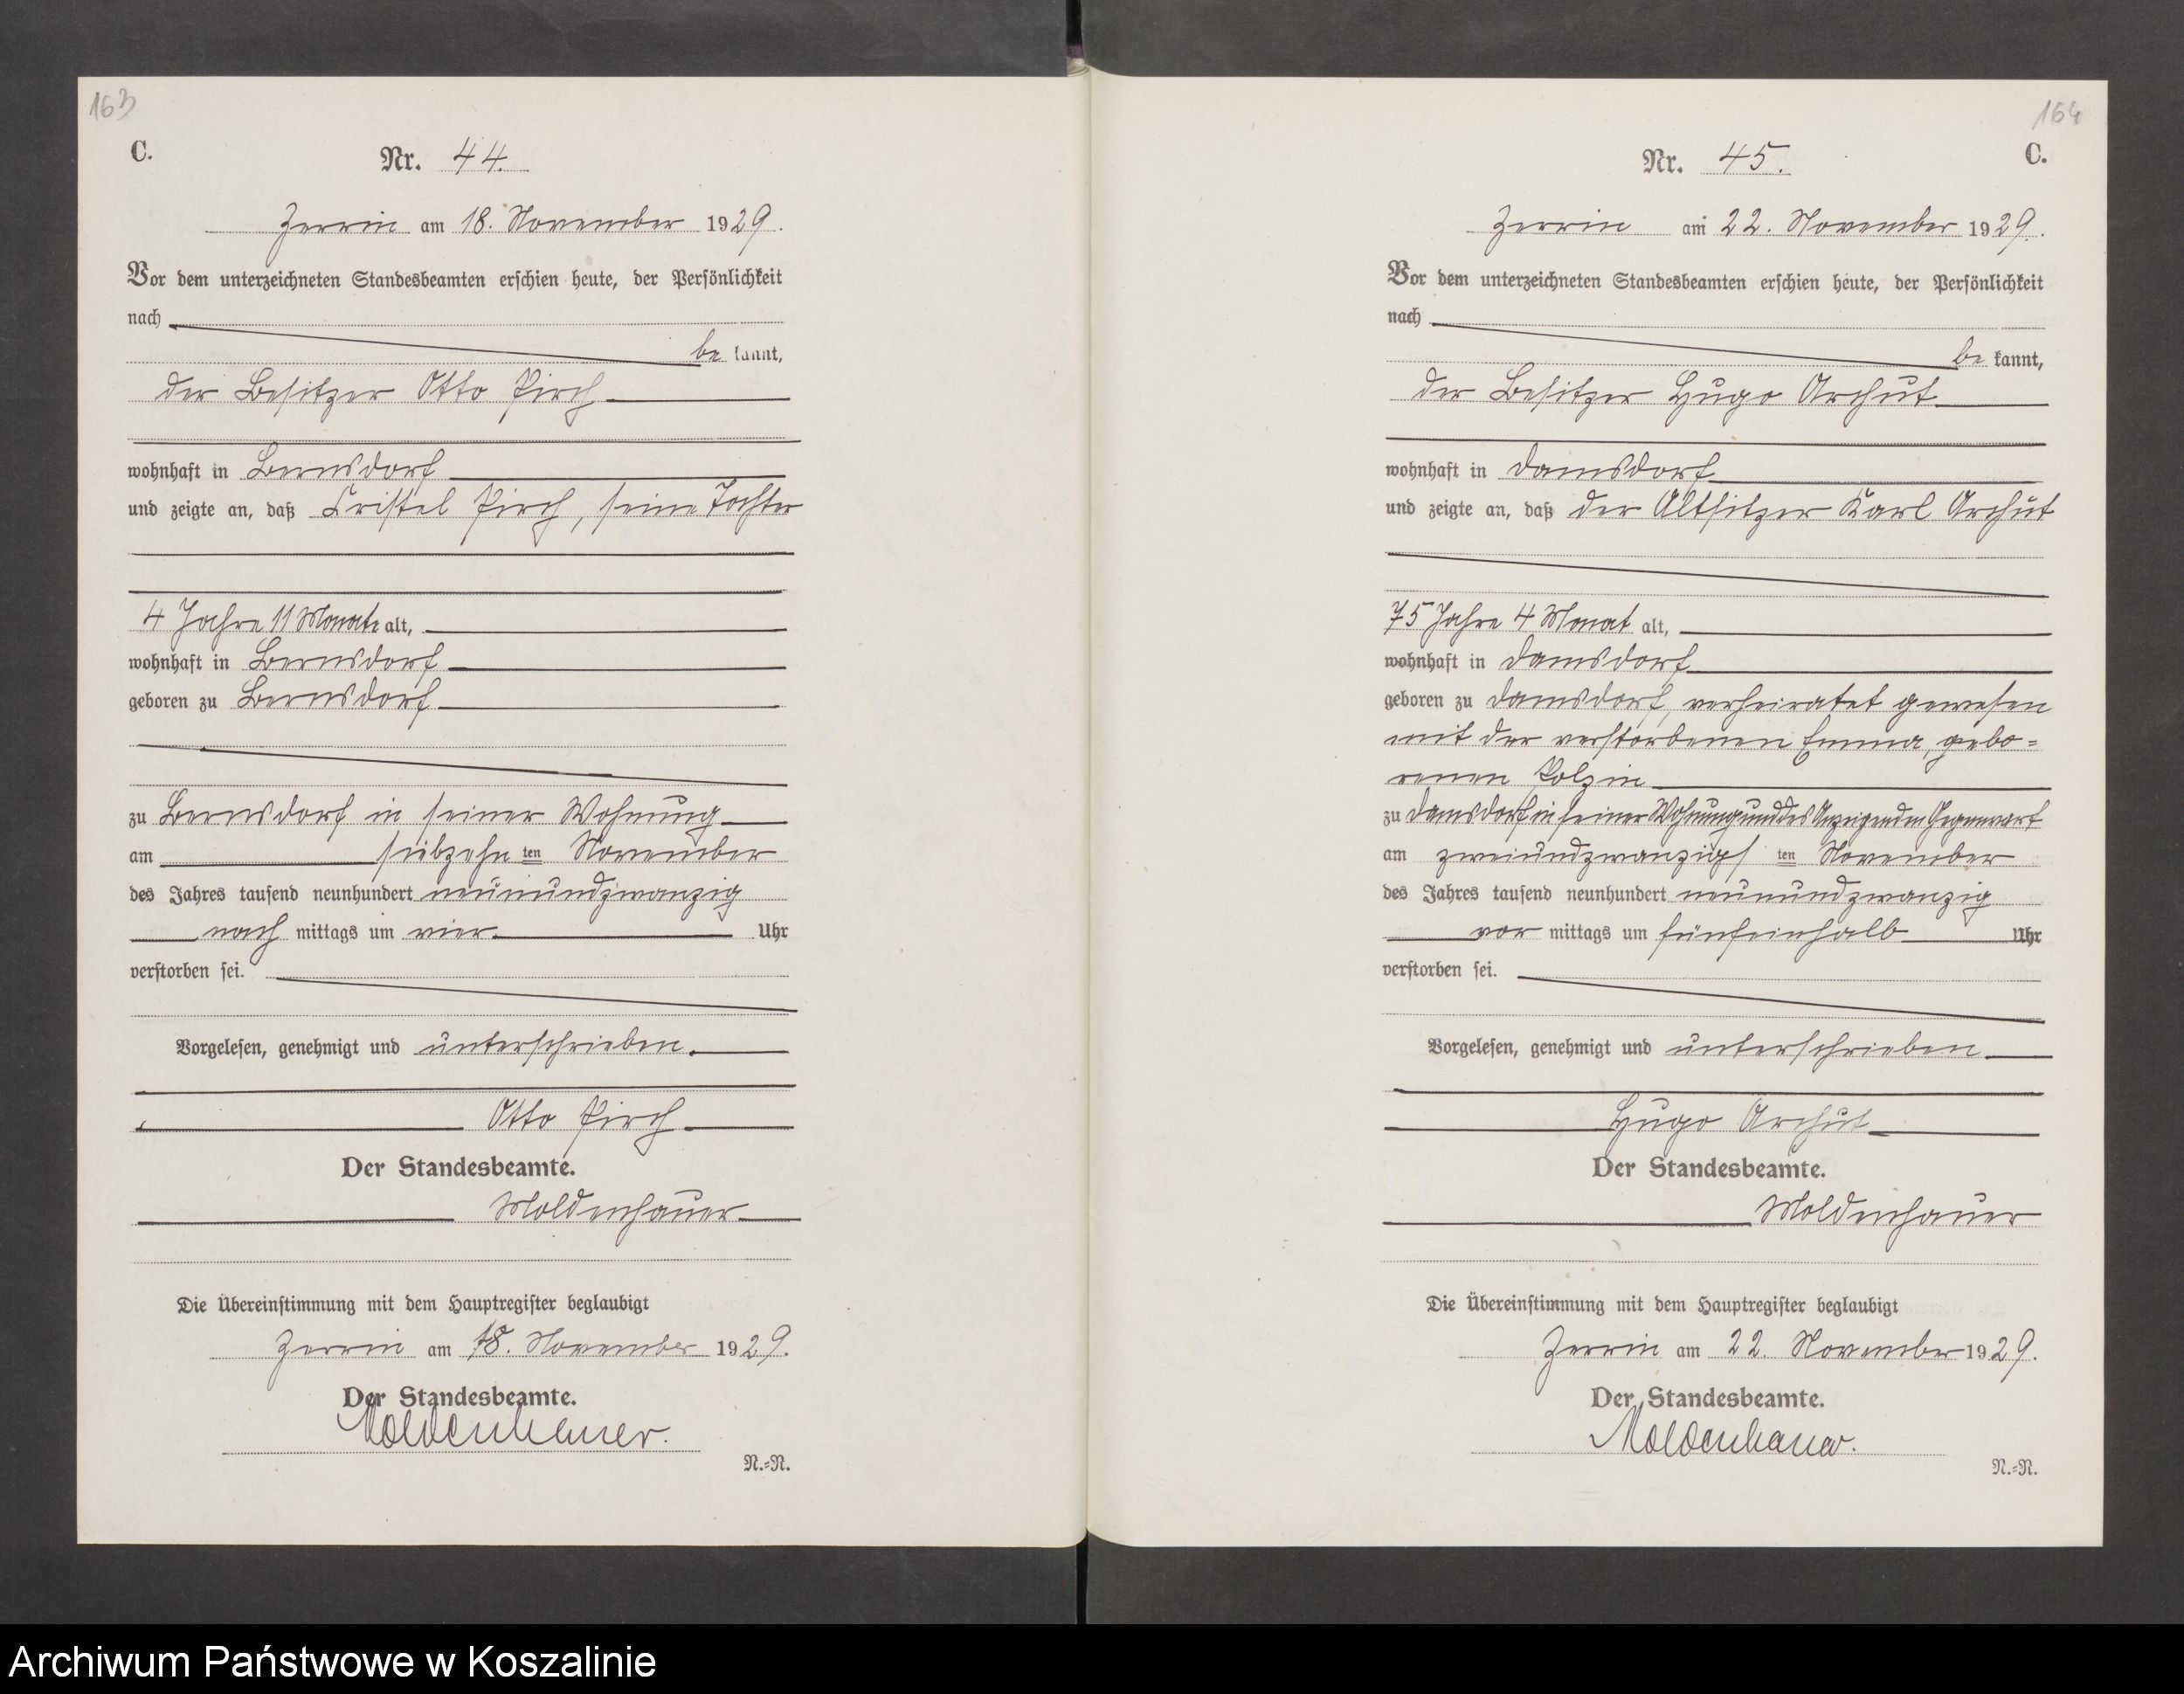 163
C.
Nr. 44.
Zerrin am 18. November 1929.
Vor dem unterzeichneten Standesbeamten erschien heute, der Persönlichkeit
nach
be kannt,
der Besitzer Otto Pirch
wohnhaft in Bernsdorf
und zeigte an, daß Cristel Pirch, seine Tochter
4 Jahre 11 Monate alt,
wohnhaft in Bernsdorf
geboren zu Bernsdorf
zu Bernsdorf in seiner Wohnung
am siebzehn ten November
des Jahres tausend neunhundert neunundzwanzig
nach mittags um vier Uhr
verstorben sei.
Vorgelesen, genehmigt und unterschrieben.
Otto Pirch
Der Standesbeamte.
Moldenhauer
Die Übereinstimmung mit dem Hauptregister beglaubigt
Zerrin am 18. November 1929.
Der Standesbeamte.
Moldenhauer.
N.=N.
164
C.
Nr. 45.
Zerrin am 22. November 1929.
Vor dem unterzeichneten Standesbeamten erschien heute, der Persönlichkeit
nach
be kannt,
der Besitzer Hugo Archut
wohnhaft in Damsdorf
und zeigte an, daß der Altsitzer Karl Archut
75 Jahre 4 Monat alt,
wohnhaft in Damsdorf
geboren zu Damsdorf, verheiratet gewesen
mit der verstorbenen Emma, gebo=
renen Polzin
zu Damsdorf in seiner Wohnung und des Anzeigenden Gegenwart
am zweiundzwanzigs ten November
des Jahres tausend neunhundert neunundzwanzig
vor mittags um fünfeinhalb Uhr
verstorben sei.
Vorgelesen, genehmigt und unterschrieben
Hugo Archut
Der Standesbeamte.
Moldenhauer
Die Übereinstimmung mit dem Hauptregister beglaubigt
Zerrin am 22. November 1929.
Der Standesbeamte.
Moldenhauer.
N.=N.
Archiwum Państwowe w Koszalinie